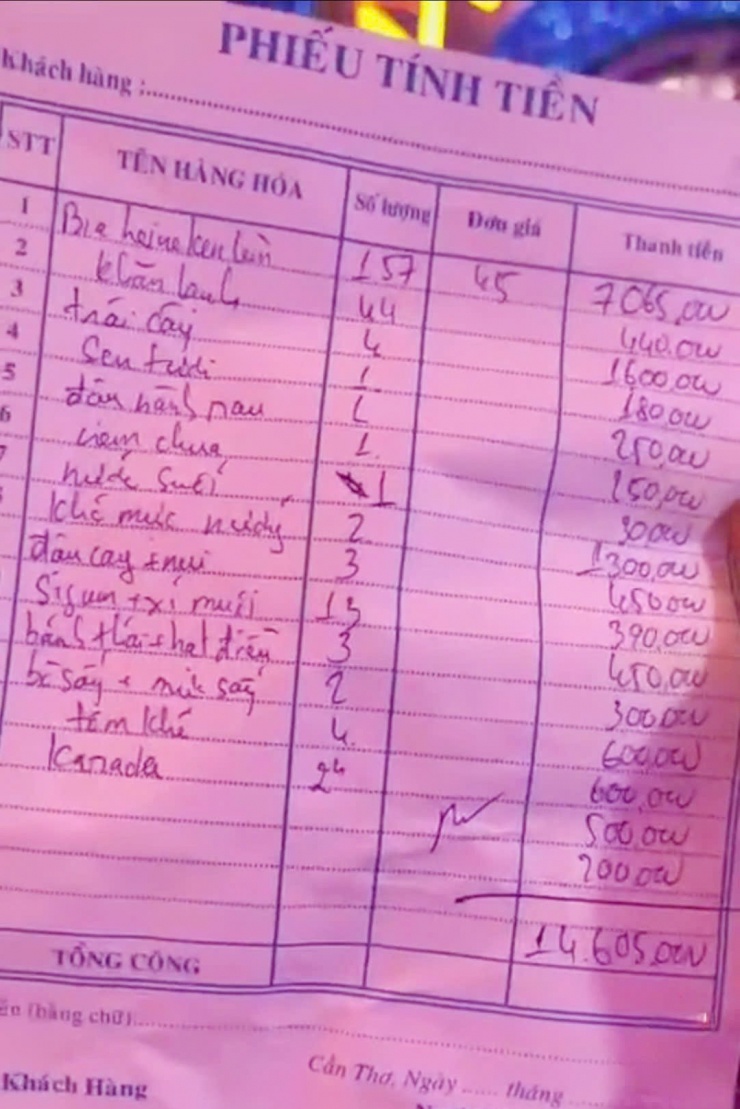 PHIẾU TÍNH TIỀN
Khách hàng :
STT TÊN HÀNG HÓA Số lượng Đơn giá Thành tiền
1 Bia heineken lùn 157 45 7065,000
2 khăn lạnh 44 440.000
3 trái cây 4 1600.000
4 Sen tươi 1 180.000
5 1 250,000
6 nem chua 1. 150,000
7 nước suối 1 30.000
khô mực nướng 2 1300.000
đậu cay + nui 3 450.000
xí muội 13 390,000
bánh + hạt điều 3 450,000
bò sấy + mít sấy 2 300.000
tôm khô 4. 600,000
Kanada 24 600,000
500,000
200.000
14.605.000
TỔNG CỘNG
(bằng chữ):
Cần Thơ, Ngày ...... tháng
Khách Hàng